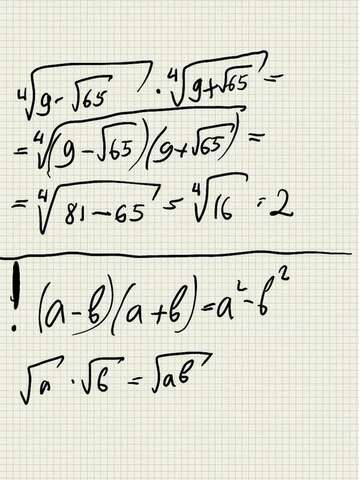 ⁴√(9-√65) · ⁴√(9+√65) =
= ⁴√((9-√65)(9+√65)) =
= ⁴√(81-65) = ⁴√16 = 2
! (a-b)(a+b)=a²-b²
√a · √b = √ab